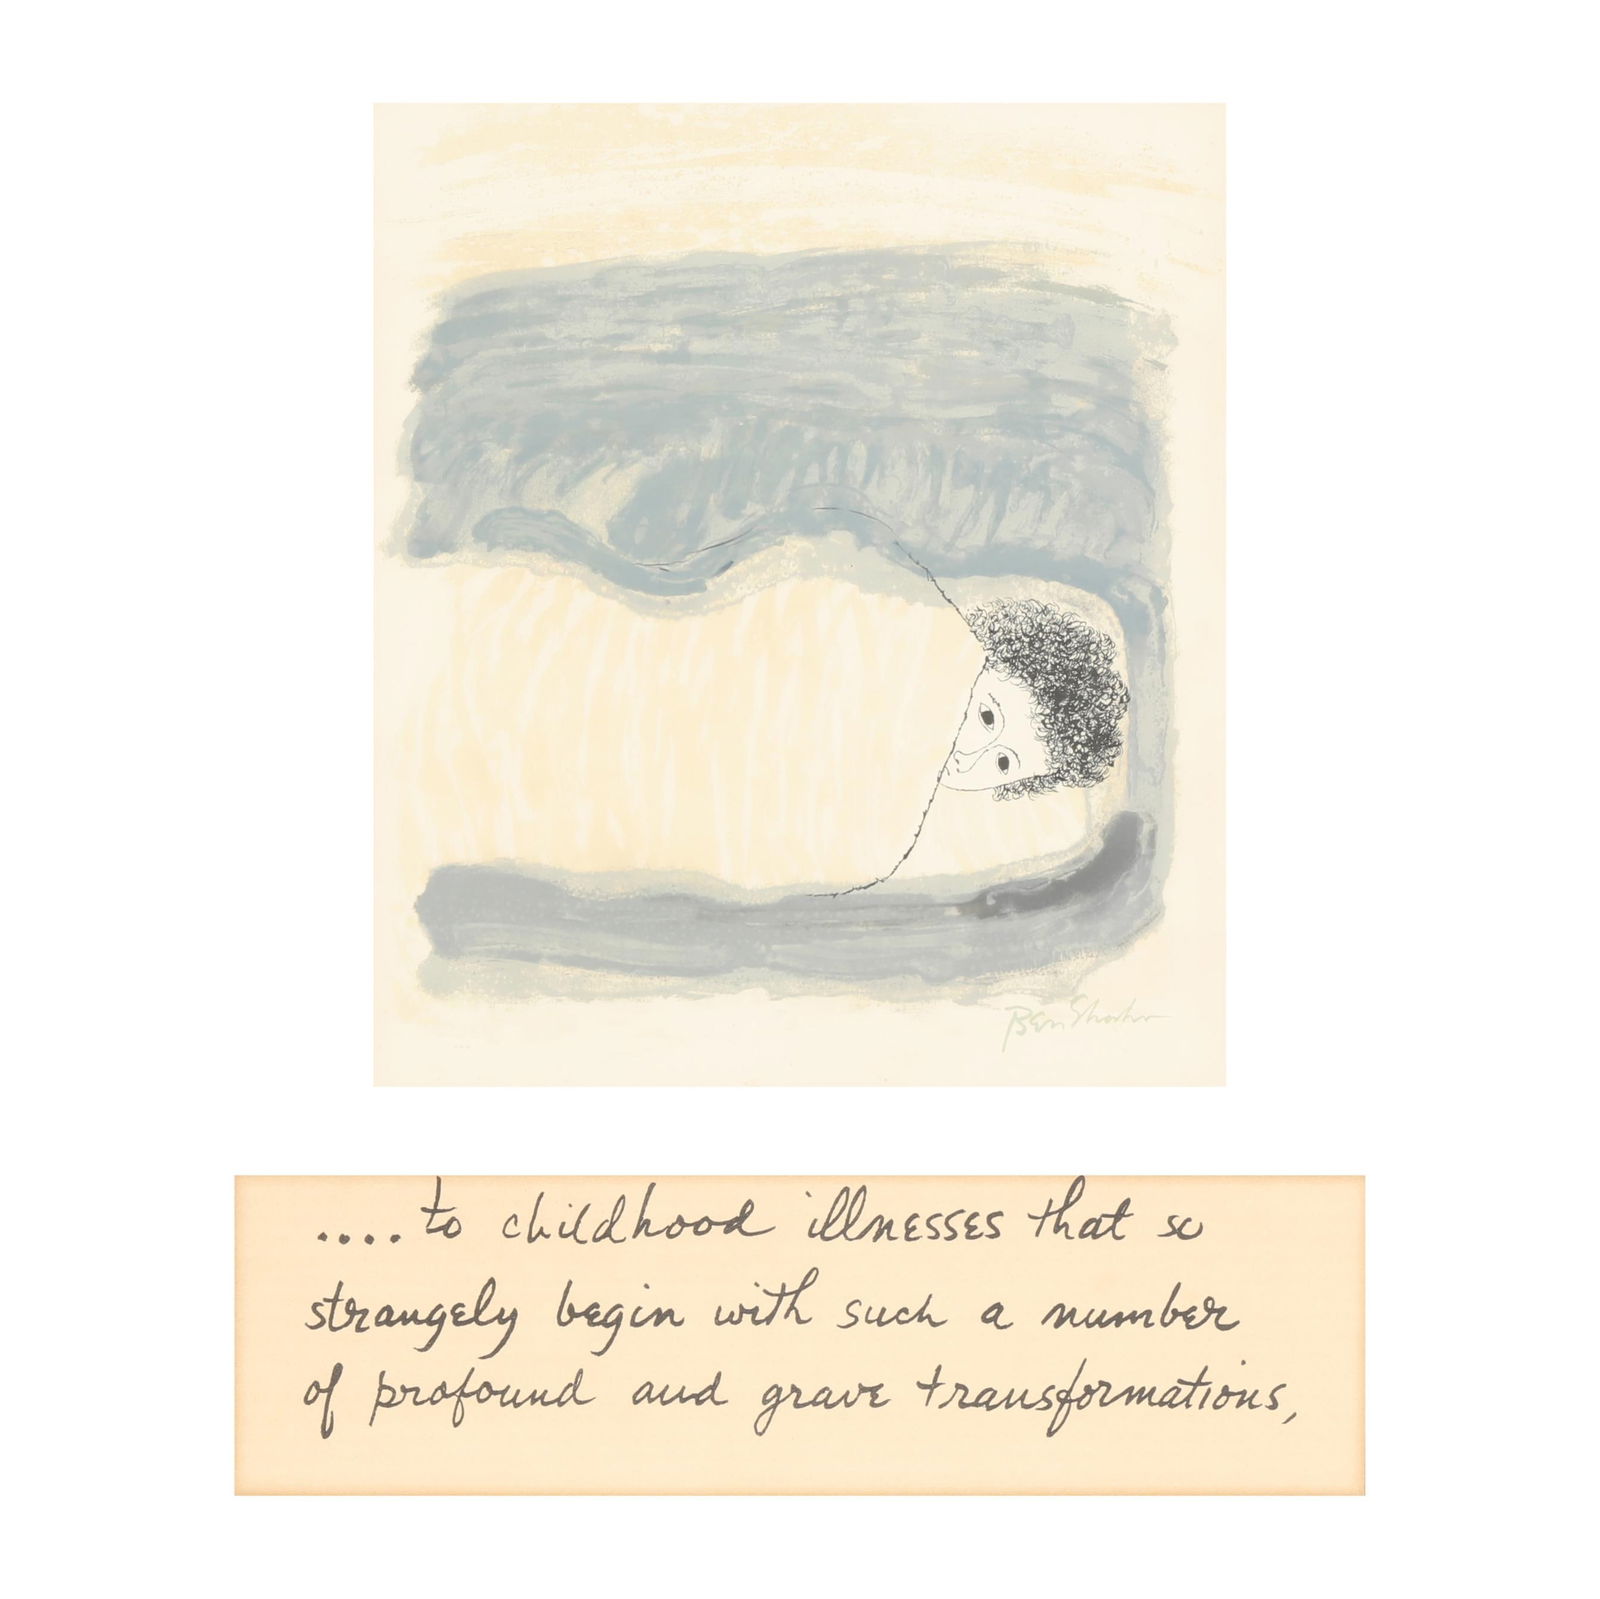 Ben Shahn
....to childhood illnesses that so
strangely begin with such a number
of profound and grave transformations,